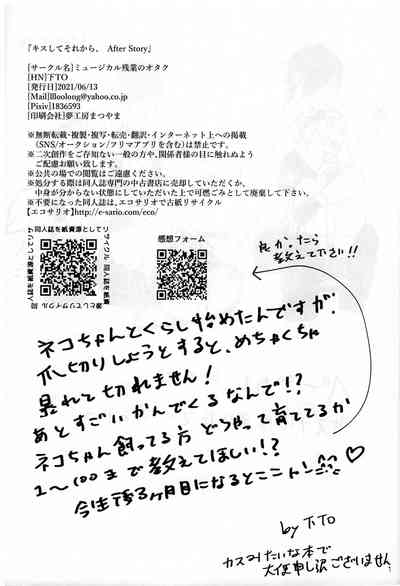 『キスしてそれから、 After Story』
[サークル名]ミュージカル残業のオタク
[HN]下TO
[発行日]2021/06/13
[Mail]l8oolong@yahoo.co.jp
[Pixiv]1836593
[印刷会社]夢工房まつやま
※無断転載・複製・複写・転売・翻訳・インターネット上への掲載
(SNS/オークション/フリマアプリを含む)は禁止です。
※二次創作をご存知ない一般の方や,関係者様の目に触れぬよう
ご配慮お願い致します。
※公共の場での閲覧はご遠慮ください。
※処分する際は同人誌専門の中古書店に売却していただくか,
中身が分からない状態にしていただいた上で可燃ごみとして廃棄して下さい。
※不要になった同人誌は,エコサリオで古紙リサイクル
【エコサリオ】http://e-sario.com/eco/
同人誌を紙資源としてリサイクル
感想フォーム
良かったら
教えて下さい!!
ネコちゃんとくらし始めたんですが、
爪切りしようとすると、めちゃくちゃ
暴れて切れません!
あとすごいかんでくるなんで!?
ネコちゃん飼ってる方 どうやって育ててるか
1~100まで教えてほしい!?
今生後3ヶ月目になるとこころ!
by 下TO
カスみたいな本で
大変申し訳ございません